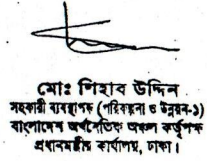 মোঃ শিহাব উদ্দিন
সহকারী ব্যবস্থাপক (পরিকল্পনা ও উন্নয়ন-১)
বাংলাদেশ অর্থনৈতিক অঞ্চল কর্তৃপক্ষ
প্রধানমন্ত্রীর কার্যালয়, ঢাকা।